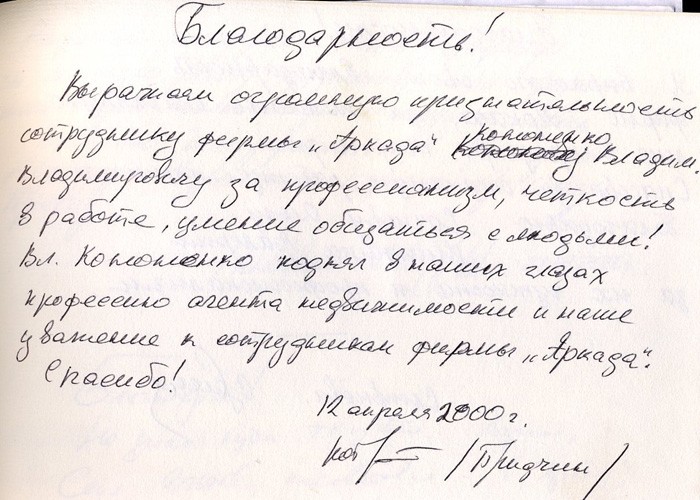 Благодарность!
Выражаем огромную признательность
сотруднику фирмы „Аркада" Кононенко Владим.
Владимировичу за профессионализм, четкость
в работе, умение общаться с людьми!
Вл. Кононенко поднял в наших глазах
профессию агента недвижимости и наше
уважение к сотрудникам фирмы „Аркада".
Спасибо!
12 апреля 2000 г.